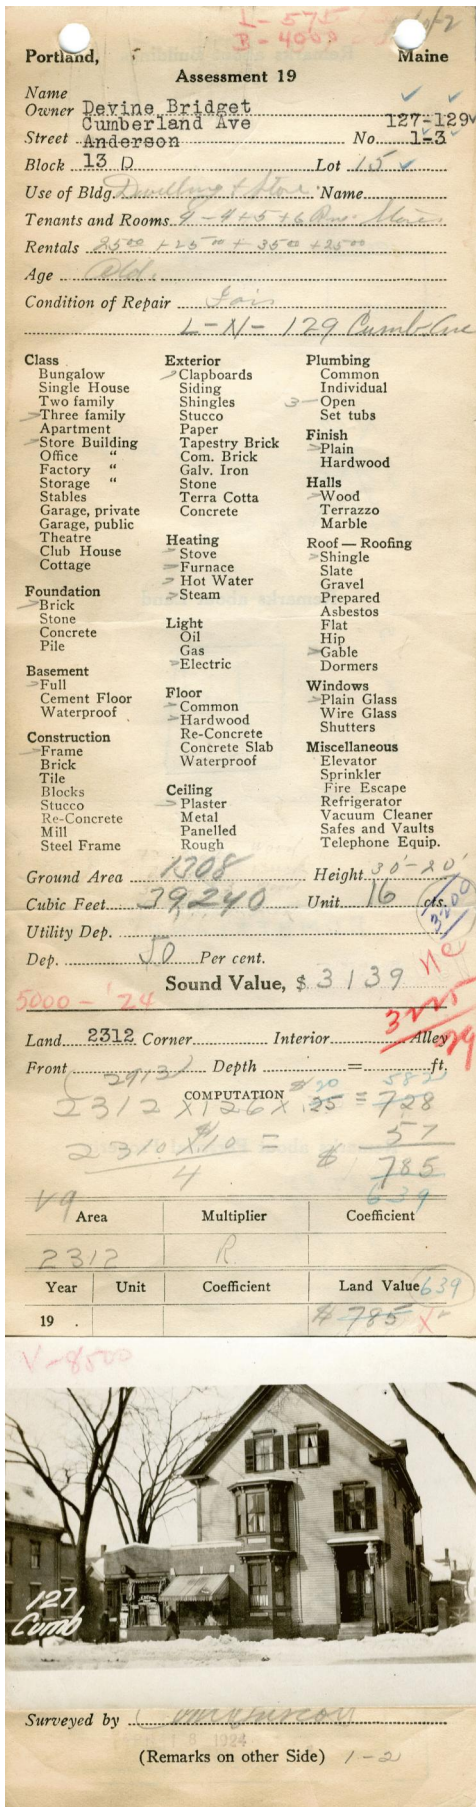 L-575
B-4000
Portland, Maine
Assessment 19
Name
Owner Devine Bridget
Cumberland Ave 127-129
Street Anderson No. 1-3
Block 13 D Lot 15
Use of Bldg. Dwelling & Store Name
Tenants and Rooms 4-4+5+6 Rms. Stores
Rentals 25.00 + 25.00 + 35.00 + 25.00
Age Old.
Condition of Repair Fair
L-N- 129 Cumb Ave
Class
Bungalow
Single House
Two family
Three family
Apartment
Store Building
Office "
Factory "
Storage "
Stables
Garage, private
Garage, public
Theatre
Club House
Cottage
Foundation
Brick
Stone
Concrete
Pile
Basement
Full
Cement Floor
Waterproof
Construction
Frame
Brick
Tile
Blocks
Stucco
Re-Concrete
Mill
Steel Frame
Exterior
Clapboards
Siding
Shingles
Stucco
Paper
Tapestry Brick
Com. Brick
Galv. Iron
Stone
Terra Cotta
Concrete
Heating
Stove
Furnace
Hot Water
Steam
Light
Oil
Gas
Electric
Floor
Common
Hardwood
Re-Concrete
Concrete Slab
Waterproof
Ceiling
Plaster
Metal
Panelled
Rough
Plumbing
Common
Individual
3- Open
Set tubs
Finish
Plain
Hardwood
Halls
Wood
Terrazzo
Marble
Roof — Roofing
Shingle
Slate
Gravel
Prepared
Asbestos
Flat
Hip
Gable
Dormers
Windows
Plain Glass
Wire Glass
Shutters
Miscellaneous
Elevator
Sprinkler
Fire Escape
Refrigerator
Vacuum Cleaner
Safes and Vaults
Telephone Equip.
Ground Area 1308 Height 30'-20'
Cubic Feet 39240 Unit 16 cts.
3200
Utility Dep.
Dep. 50 Per cent.
Sound Value, $ 3139
5000 - '24
3225
29
Land 2312 Corner Interior Alley
Front Depth = ft.
(2913)
COMPUTATION
20 582
2312 X 126 X .25 = 728
2310 X $10 = 57
4 $ 785
639
V9
Area Multiplier Coefficient
2312 R
Year Unit Coefficient Land Value 639
19 . $ 785
V-8500
127
Cumb
Surveyed by
18 1924
(Remarks on other Side) 1-2